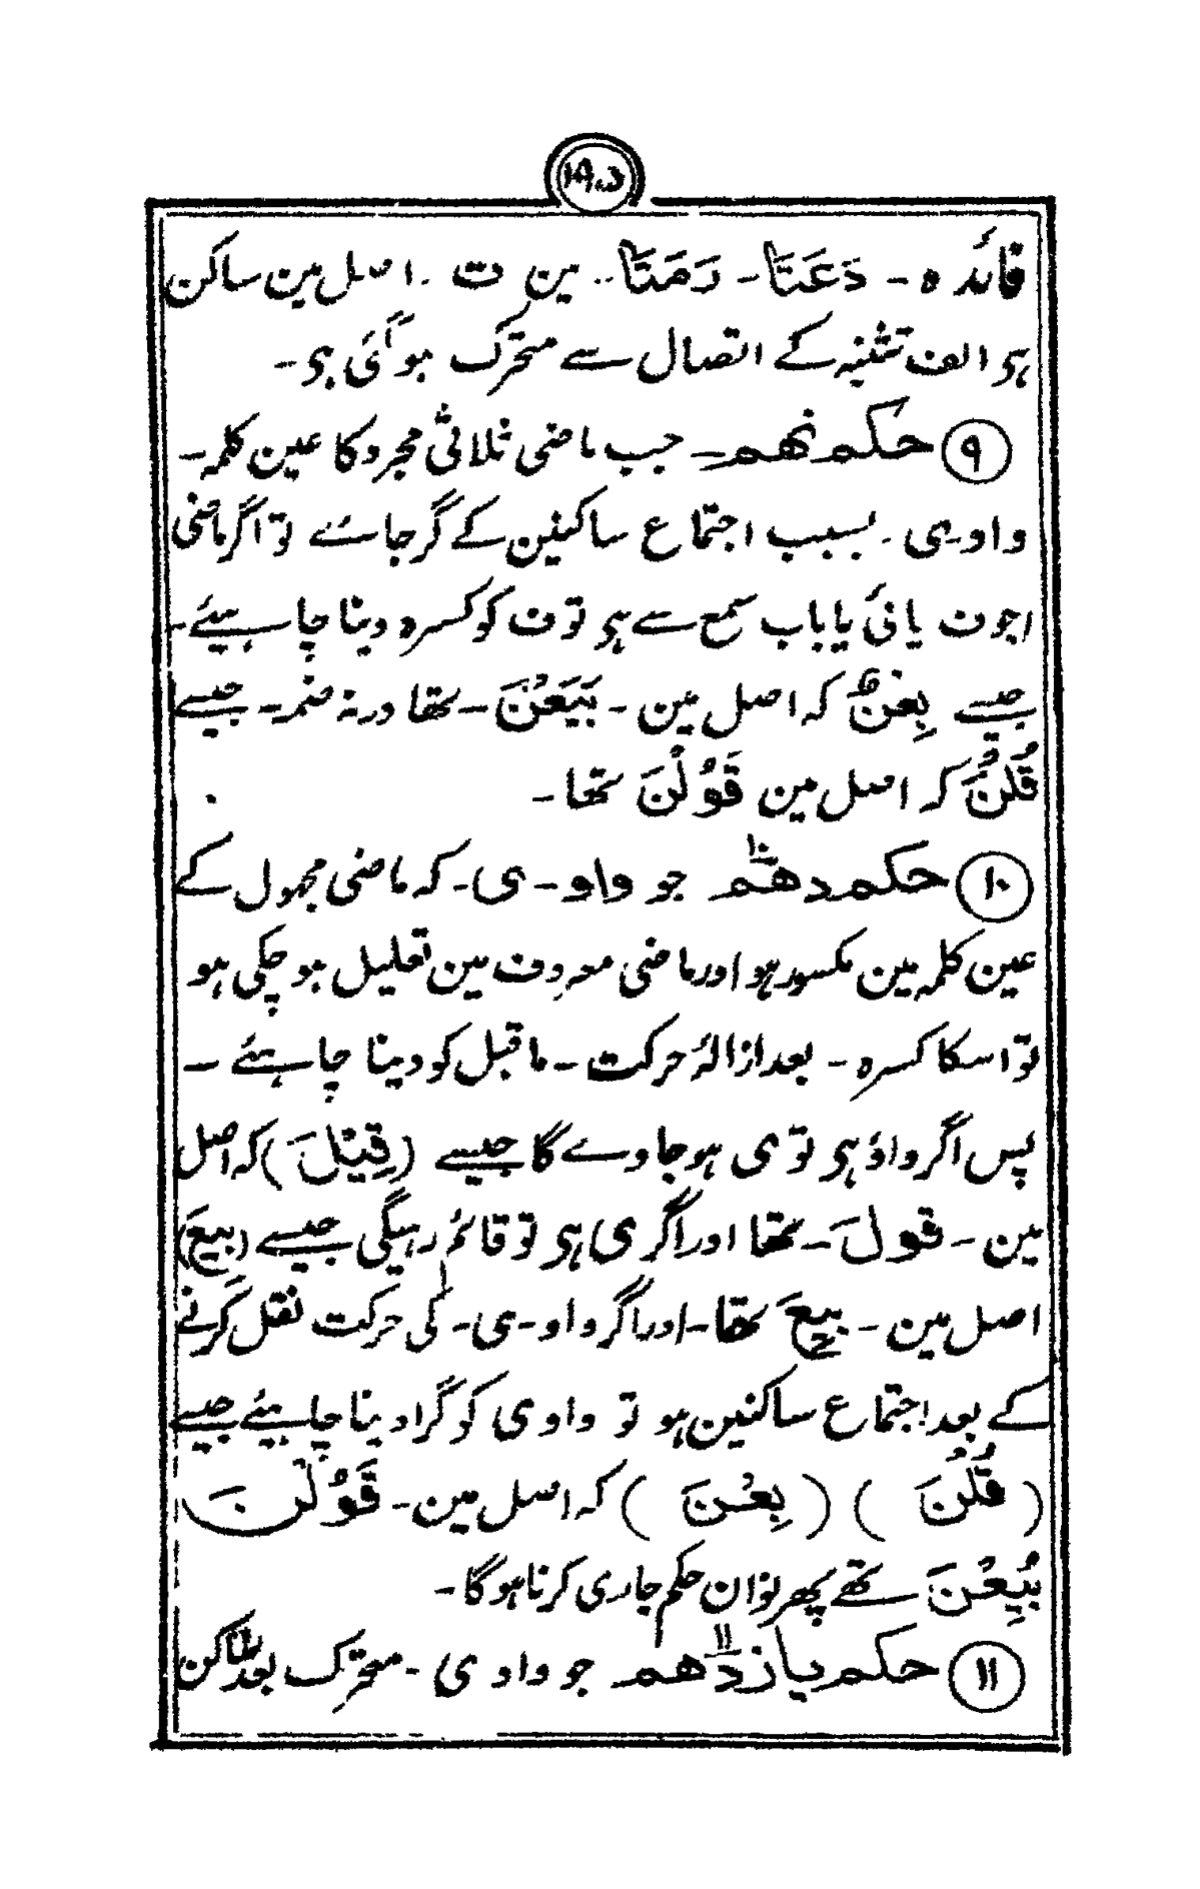 ۱۹۵
فائدہ ۔ دَعَتَا ۔ رَمَتَا ۔۔ مین ت ۔ اصل مین ساکن
ہی الف تثنیہ کے اتصال سے متحرک ہوگئی ہی ۔
⑨ حکم نہم ۔ جب ماضی ثلاثی مجرد کا عین کلمہ ۔
واو ۔ ی ۔ بسبب اجتماع ساکنین کے گر جائے تو اگر ماضی
اجوف یائی یا باب سمع سے ہی تو ف کو کسرہ دینا چاہیئے ۔
جیسے بِعْنَ کہ اصل مین ۔ بَیَعْنَ ۔ تھا ورنہ ضمہ ۔ جیسے
قُلْنَ کہ اصل مین قَوُلْنَ تھا ۔
⑩ حکم دہم ۱۰ جو واو ۔ ی ۔ کہ ماضی مجہول کے
عین کلمہ مین مکسور ہو اور ماضی معروف مین تعلیل ہو چکی ہو
تو اسکا کسرہ ۔ بعد ازالۂ حرکت ۔ ماقبل کو دینا چاہئے ۔
پس اگر واؤ ہی تو ی ہو جاوے گا جیسے (قِیْلَ) کہ اصل
مین ۔ قولَ ۔ تھا اور اگر ی ہی تو قائم رہیگی جیسے (بیعَ)
اصل مین ۔ بیِعَ تھا ۔ اور اگر واو ۔ ی ۔ کی حرکت نقل کرنے
کے بعد اجتماع ساکنین ہو تو واو ی کو گرا دینا چاہیئے جیسے
(قُلْنَ) (بِعْنَ) کہ اصل مین ۔ قَوُلْنَ
بُیِعْنَ تھے پھر نوان حکم جاری کرنا ہوگا ۔
⑪ حکم یازدہم ۱۱ جو واو ی ۔ متحرک بعد ساکن